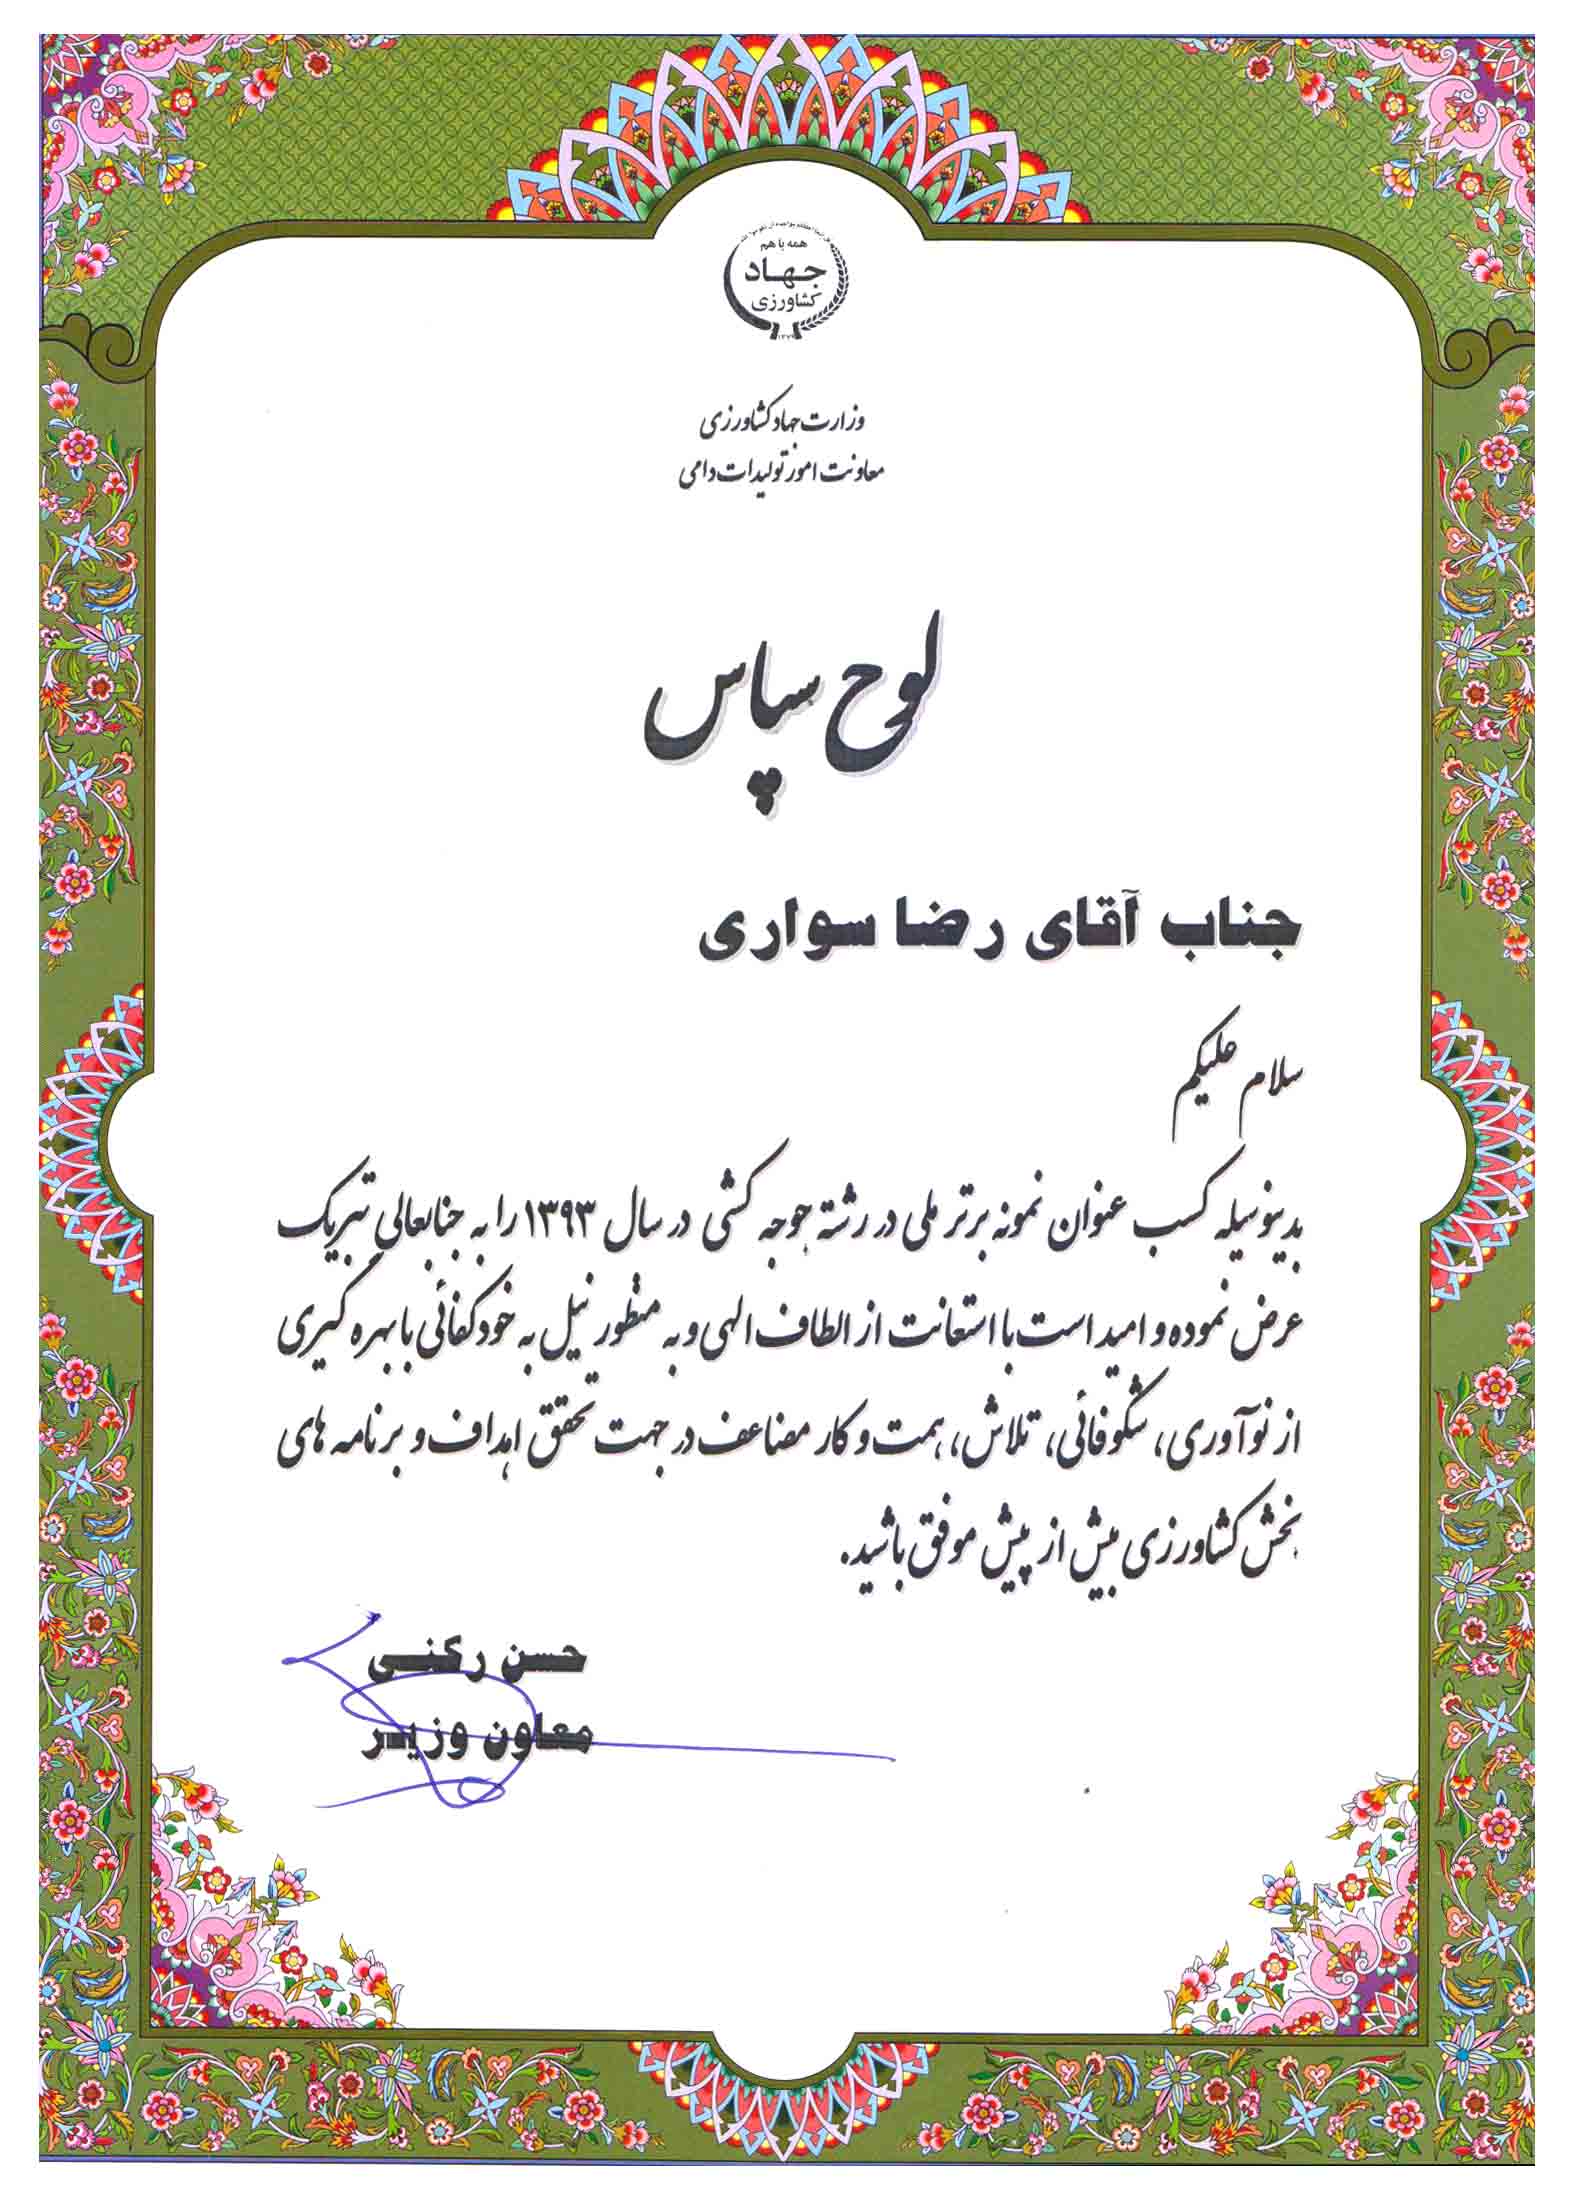 همه با هم
جهاد
کشاورزی
وزارت جهاد کشاورزی
معاونت امور تولیدات دامی
لوح سپاس
جناب آقای رضا سواری
سلام علیکم
بدینوسیله کسب عنوان نمونه برتر ملی در رشته جوجه کشی در سال ۱۳۹۳ را به جنابعالی تبریک
عرض نموده و امید است با استعانت از الطاف الهی و به منظور نیل به خودکفائی با بهره گیری
از نوآوری، شکوفائی، تلاش، همت و کار مضاعف در جهت تحقق اهداف و برنامه های
بخش کشاورزی بیش از پیش موفق باشید.
حسن رکنی
معاون وزیر